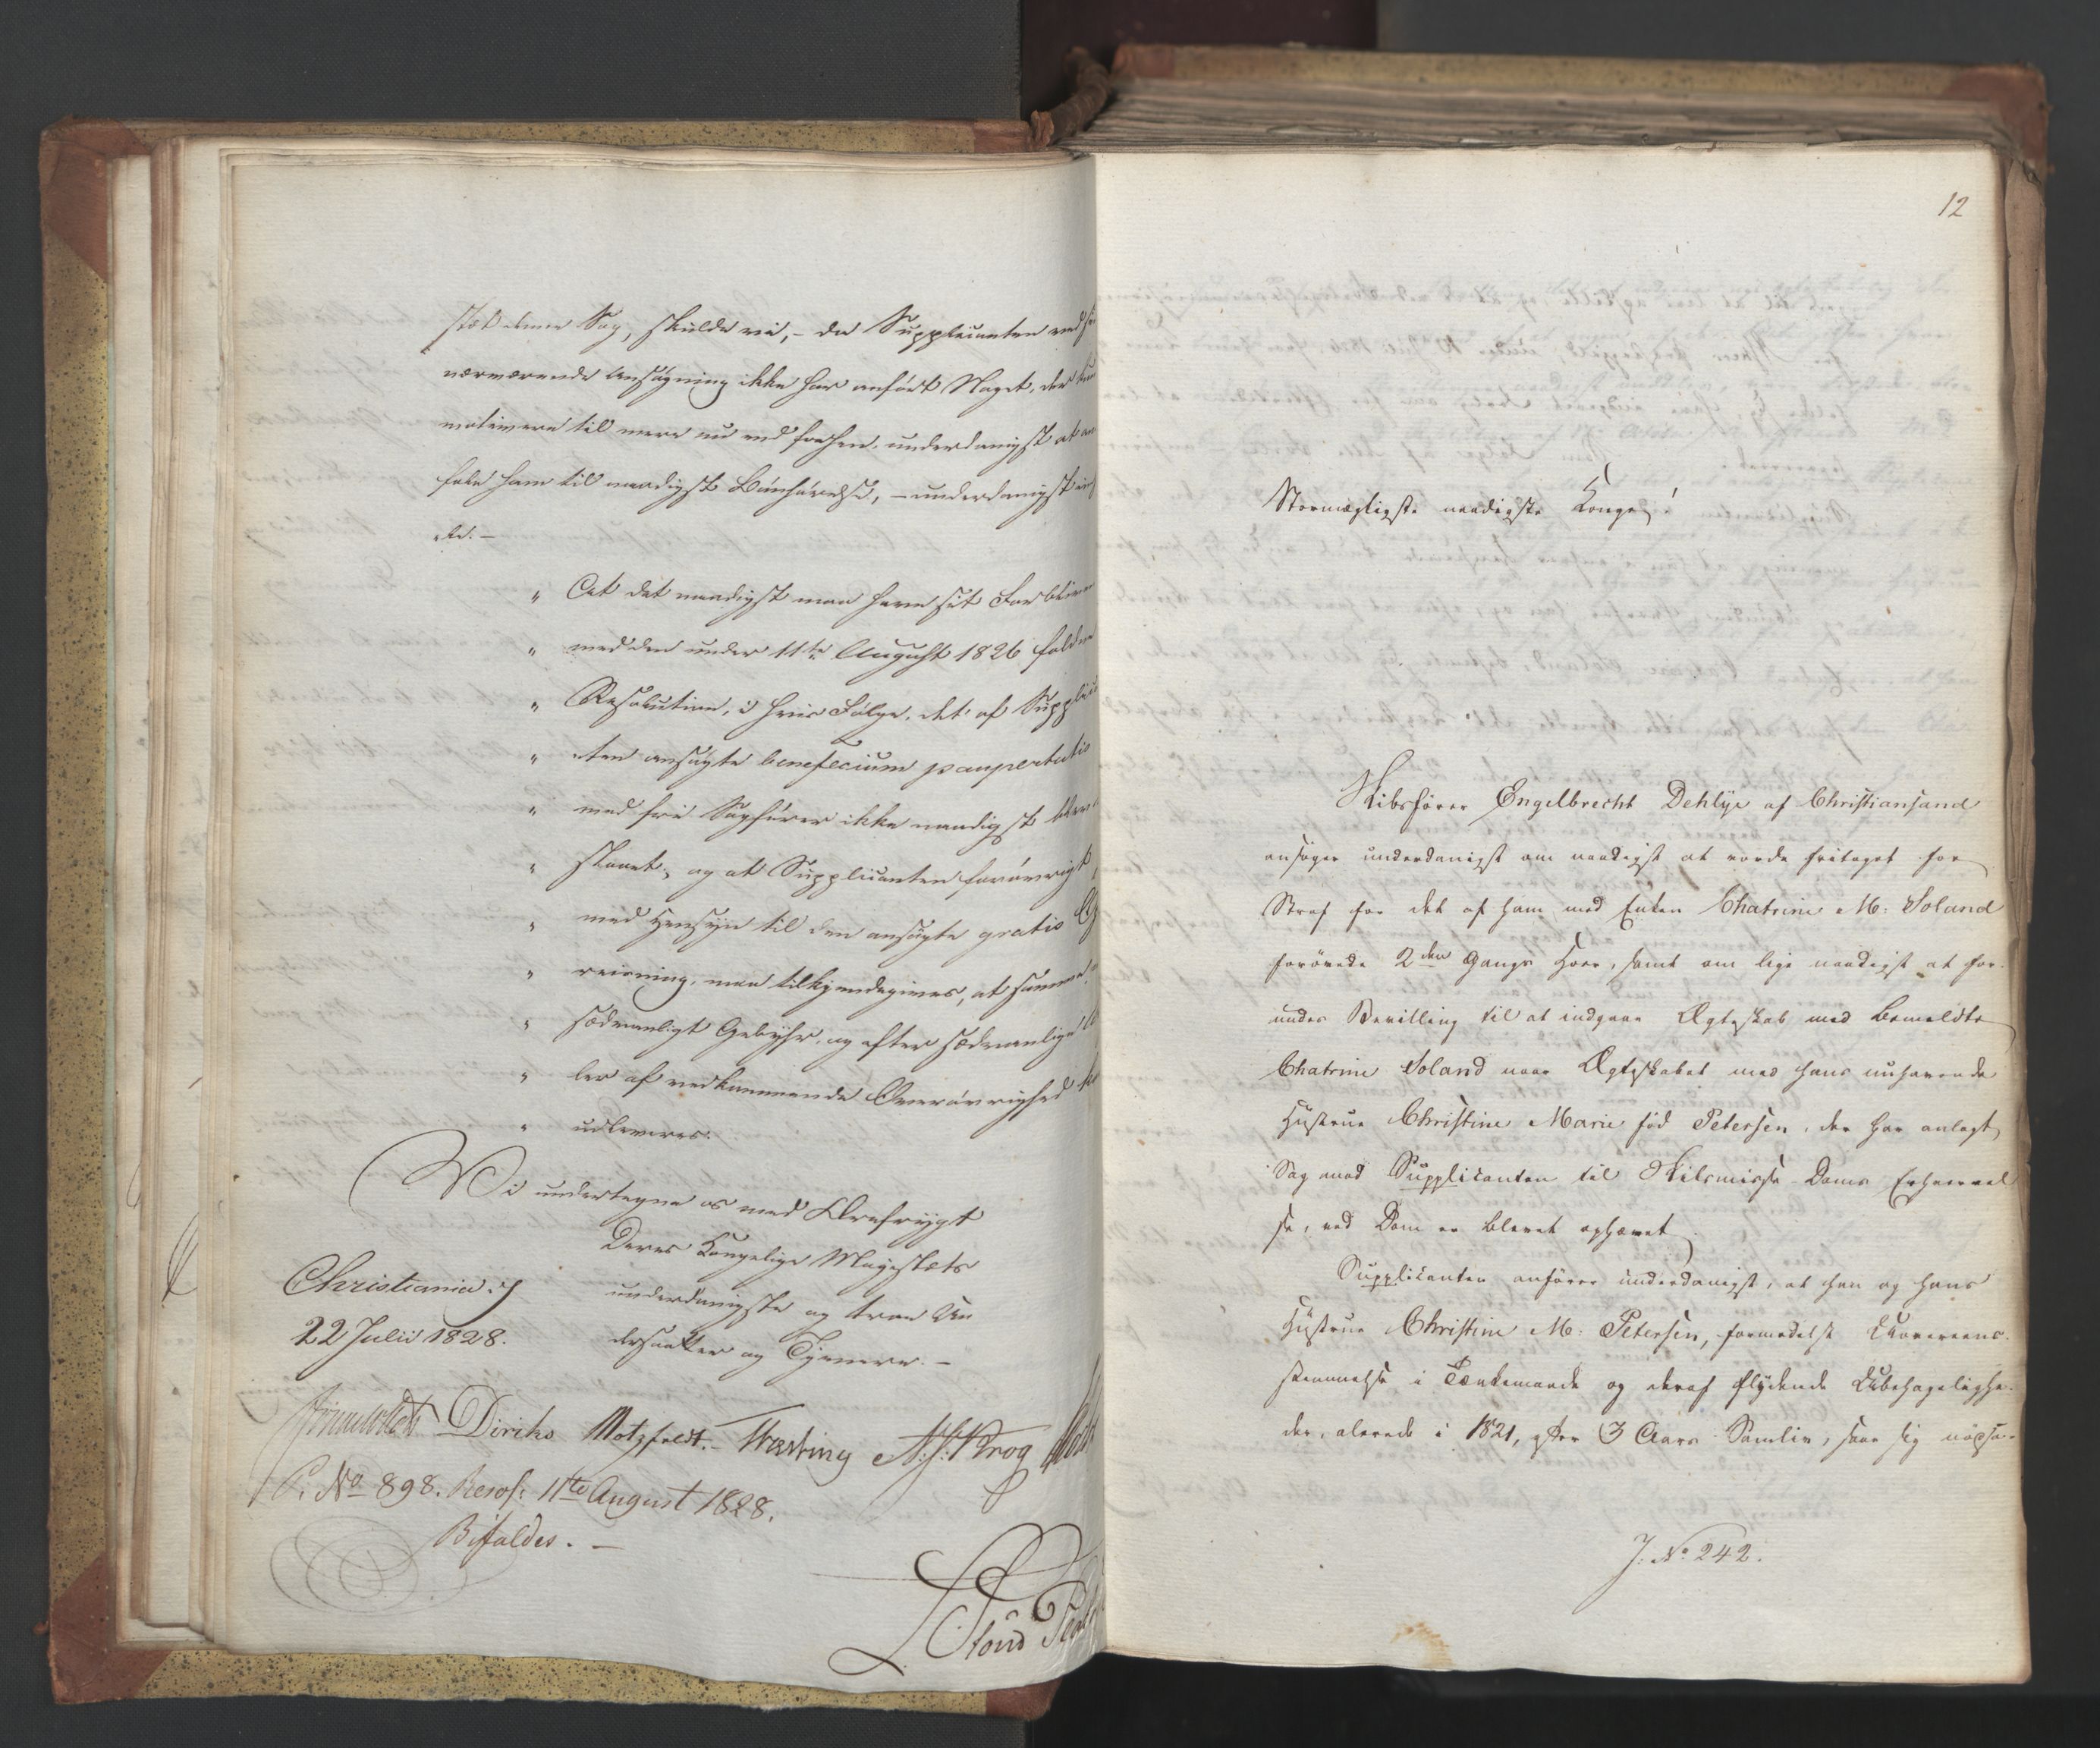 stækkelser Sag, skulde vi, – da Supplicanten ved
nærværende Ansøgning ikke har anført Noget, der
motivere til mere nu end forhen, underdanigst at an-
fale ham til naadigst Bønhørelse, – underdanigst
. –
" At det naadigst maa have sit Forblivende
" med den under 11te August 1826 faldne
" Resolution, i hvis Følge, det af Supplican-
" ten ansøgte beneficium paupertatis
" med fri Sagfører ikke naadigst blev
" staaet; og at Supplicanten forøvrigt,
" med Hensyn til den ansøgte gratis
" , maa tilkjendegives, at samme,
" sædvanligt Gebyhr, og efter sædvanlige
" ler af vedkommende Overøvrighed
" udleveres.
Vi undertegne os med Ærefrygt
Deres Kongelige Majestæts
Christiania :/ underdanigste og troe Un
22 Julii 1828. dersaatter og Tjenere. –
Diriks Motzfeldt. – Treschow Krog
P. No 898. Resol: 11te August 1828.
Bifaldes. –

12
Stormægtigste naadigste Konge!
Skibsfører Engelbrecht Dehlye af Christiansand
ansøger underdanigst om naadigst at vorde fritaget for
Straf for det af ham med Enken Chatrine M: Soland
forøvede 2den Gangs Hoer, samt om lige naadigst at for-
undes Bevilling til at indgaae Ægteskab med bemeldte
Chatrine Soland naar Ægteskabet med hans nuhavende
Hustrue Christine Marie fød Petersen, der har anlagt
Sag mod Supplicanten til Skilsmisse-Doms Erhvervel
se, ved Dom er blevet ophævet.
Supplicanten anfører underdanigst, at han og hans
Hustrue Christine M: Petersen, formedelst Uovereens-
stemmelse i Tænkemaade og deraf flydende Ubehagelighe-
der, allerede i 1821, efter 3 Aars Samliv, saae sig nødsa-
J: No 242.